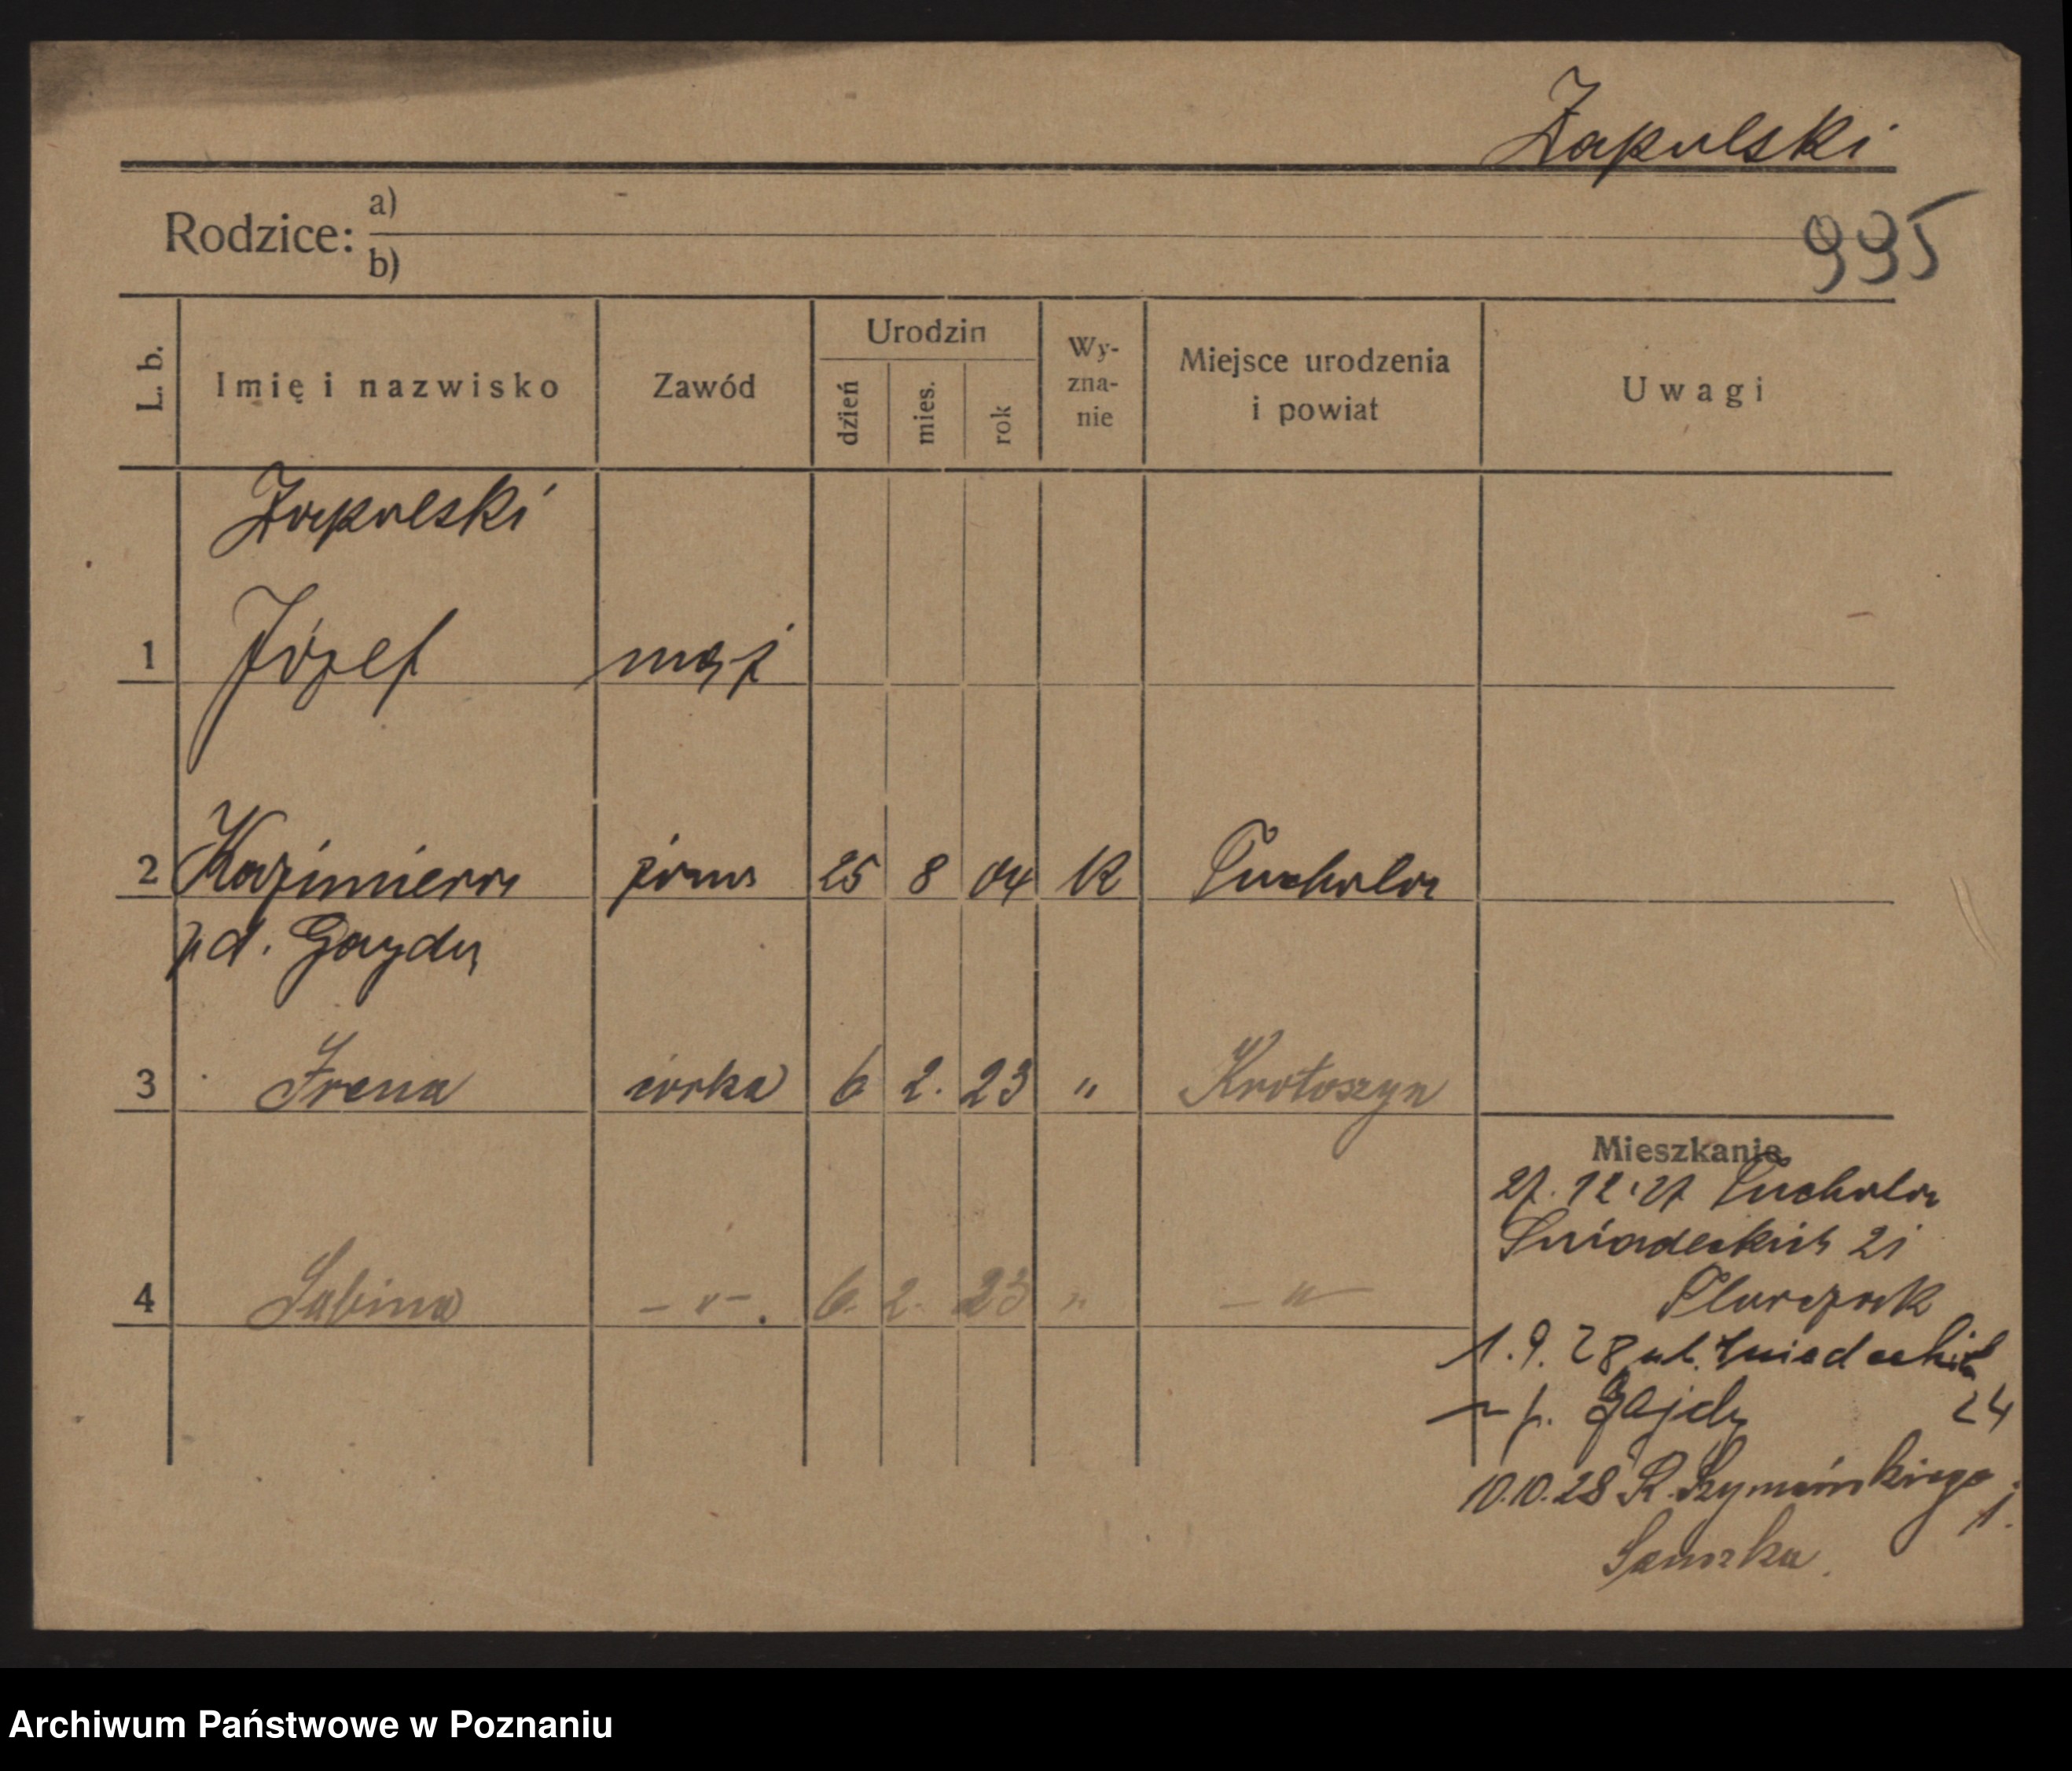 Zapulski
Rodzice: a)
b)
995
L. b. Imię i nazwisko Zawód Urodzin dzień mies. rok Wy-zna-nie Miejsce urodzenia i powiat Uwagi
Zapulski
1 Józef mąż
2 Kazimiera żona 25 8 04 K Tuchola
zd. Gayda
3 Irena córka 6 2. 23 " Krotoszyn
Mieszkanie
27. 12. 27 Tuchola
Śniadeckich 21
4 Sabina - " - . 6. 2. 23 " - " -
1. 9. 28 ul. Śniadeckich
24
p. Gajdy
10.10.28 R. Szymańskiego
1.
Archiwum Państwowe w Poznaniu